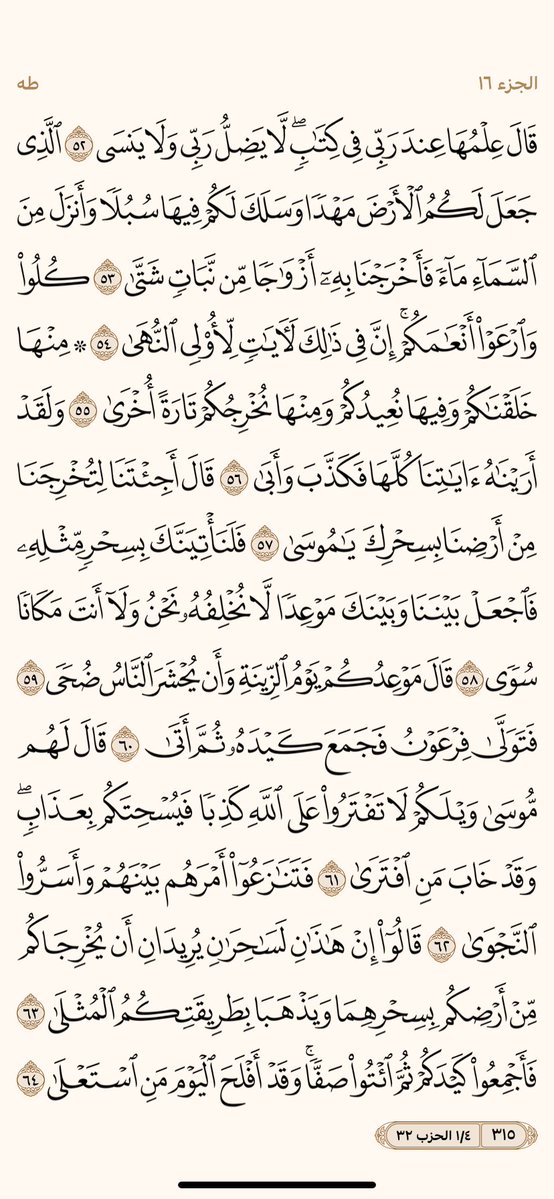 الجزء ١٦
طه
قَالَ عِلْمُهَا عِندَ رَبِّى فِى كِتَٰبٍۖ لَّا يَضِلُّ رَبِّى وَلَا يَنسَى ٥٢ ٱلَّذِى
جَعَلَ لَكُمُ ٱلْأَرْضَ مَهْدًا وَسَلَكَ لَكُمْ فِيهَا سُبُلًا وَأَنزَلَ مِنَ
ٱلسَّمَآءِ مَآءً فَأَخْرَجْنَا بِهِۦٓ أَزْوَٰجًا مِّن نَّبَاتٍ شَتَّىٰ ٥٣ كُلُوا۟
وَٱرْعَوْا۟ أَنْعَٰمَكُمْۗ إِنَّ فِى ذَٰلِكَ لَءَايَٰتٍ لِّأُو۟لِى ٱلنُّهَىٰ ٥٤ ۞ مِنْهَا
خَلَقْنَٰكُمْ وَفِيهَا نُعِيدُكُمْ وَمِنْهَا نُخْرِجُكُمْ تَارَةً أُخْرَىٰ ٥٥ وَلَقَدْ
أَرَيْنَٰهُ ءَايَٰتِنَا كُلَّهَا فَكَذَّبَ وَأَبَىٰ ٥٦ قَالَ أَجِئْتَنَا لِتُخْرِجَنَا
مِنْ أَرْضِنَا بِسِحْرِكَ يَٰمُوسَىٰ ٥٧ فَلَنَأْتِيَنَّكَ بِسِحْرٍ مِّثْلِهِۦ
فَٱجْعَلْ بَيْنَنَا وَبَيْنَكَ مَوْعِدًا لَّا نُخْلِفُهُۥ نَحْنُ وَلَآ أَنتَ مَكَانًا
سُوًى ٥٨ قَالَ مَوْعِدُكُمْ يَوْمُ ٱلزِّينَةِ وَأَن يُحْشَرَ ٱلنَّاسُ ضُحًى ٥٩
فَتَوَلَّىٰ فِرْعَوْنُ فَجَمَعَ كَيْدَهُۥ ثُمَّ أَتَىٰ ٦٠ قَالَ لَهُم
مُّوسَىٰ وَيْلَكُمْ لَا تَفْتَرُوا۟ عَلَى ٱللَّهِ كَذِبًا فَيُسْحِتَكُم بِعَذَابٍۖ
وَقَدْ خَابَ مَنِ ٱفْتَرَىٰ ٦١ فَتَنَٰزَعُوٓا۟ أَمْرَهُم بَيْنَهُمْ وَأَسَرُّوا۟
ٱلنَّجْوَىٰ ٦٢ قَالُوٓا۟ إِنْ هَٰذَٰنِ لَسَٰحِرَٰنِ يُرِيدَانِ أَن يُخْرِجَاكُم
مِّنْ أَرْضِكُم بِسِحْرِهِمَا وَيَذْهَبَا بِطَرِيقَتِكُمُ ٱلْمُثْلَىٰ ٦٣
فَأَجْمِعُوا۟ كَيْدَكُمْ ثُمَّ ٱئْتُوا۟ صَفًّاۚ وَقَدْ أَفْلَحَ ٱلْيَوْمَ مَنِ ٱسْتَعْلَىٰ ٦٤
٣١٥
١/٤ الحزب ٣٢